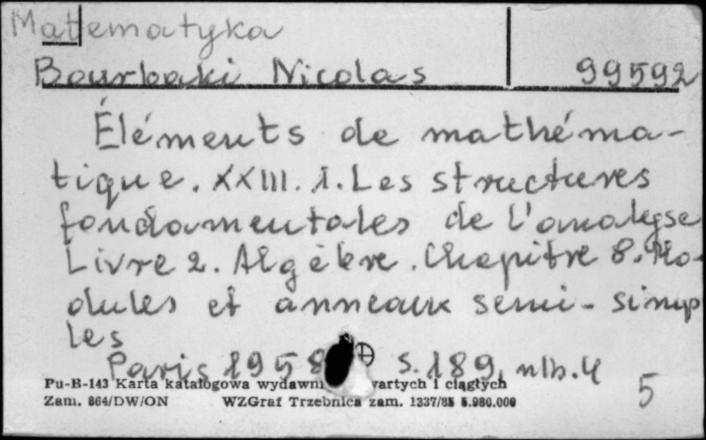 Matematyka
Bourbaki Nicolas 99592
Éléments de mathéma-
tique. XXIII. 1. Les structures
fondamentales de l'analyse
Livre 2. Algèbre. Chapitre 8. Mo-
dules et anneaux semi-simp
les
Paris 1958 S. 189, nlb. 4
5
Pu-B-143 Karta katalogowa wydawni wartych i ciągłych
Zam. 864/DW/ON WZGraf Trzebnica zam. 1337/85 5.980.000